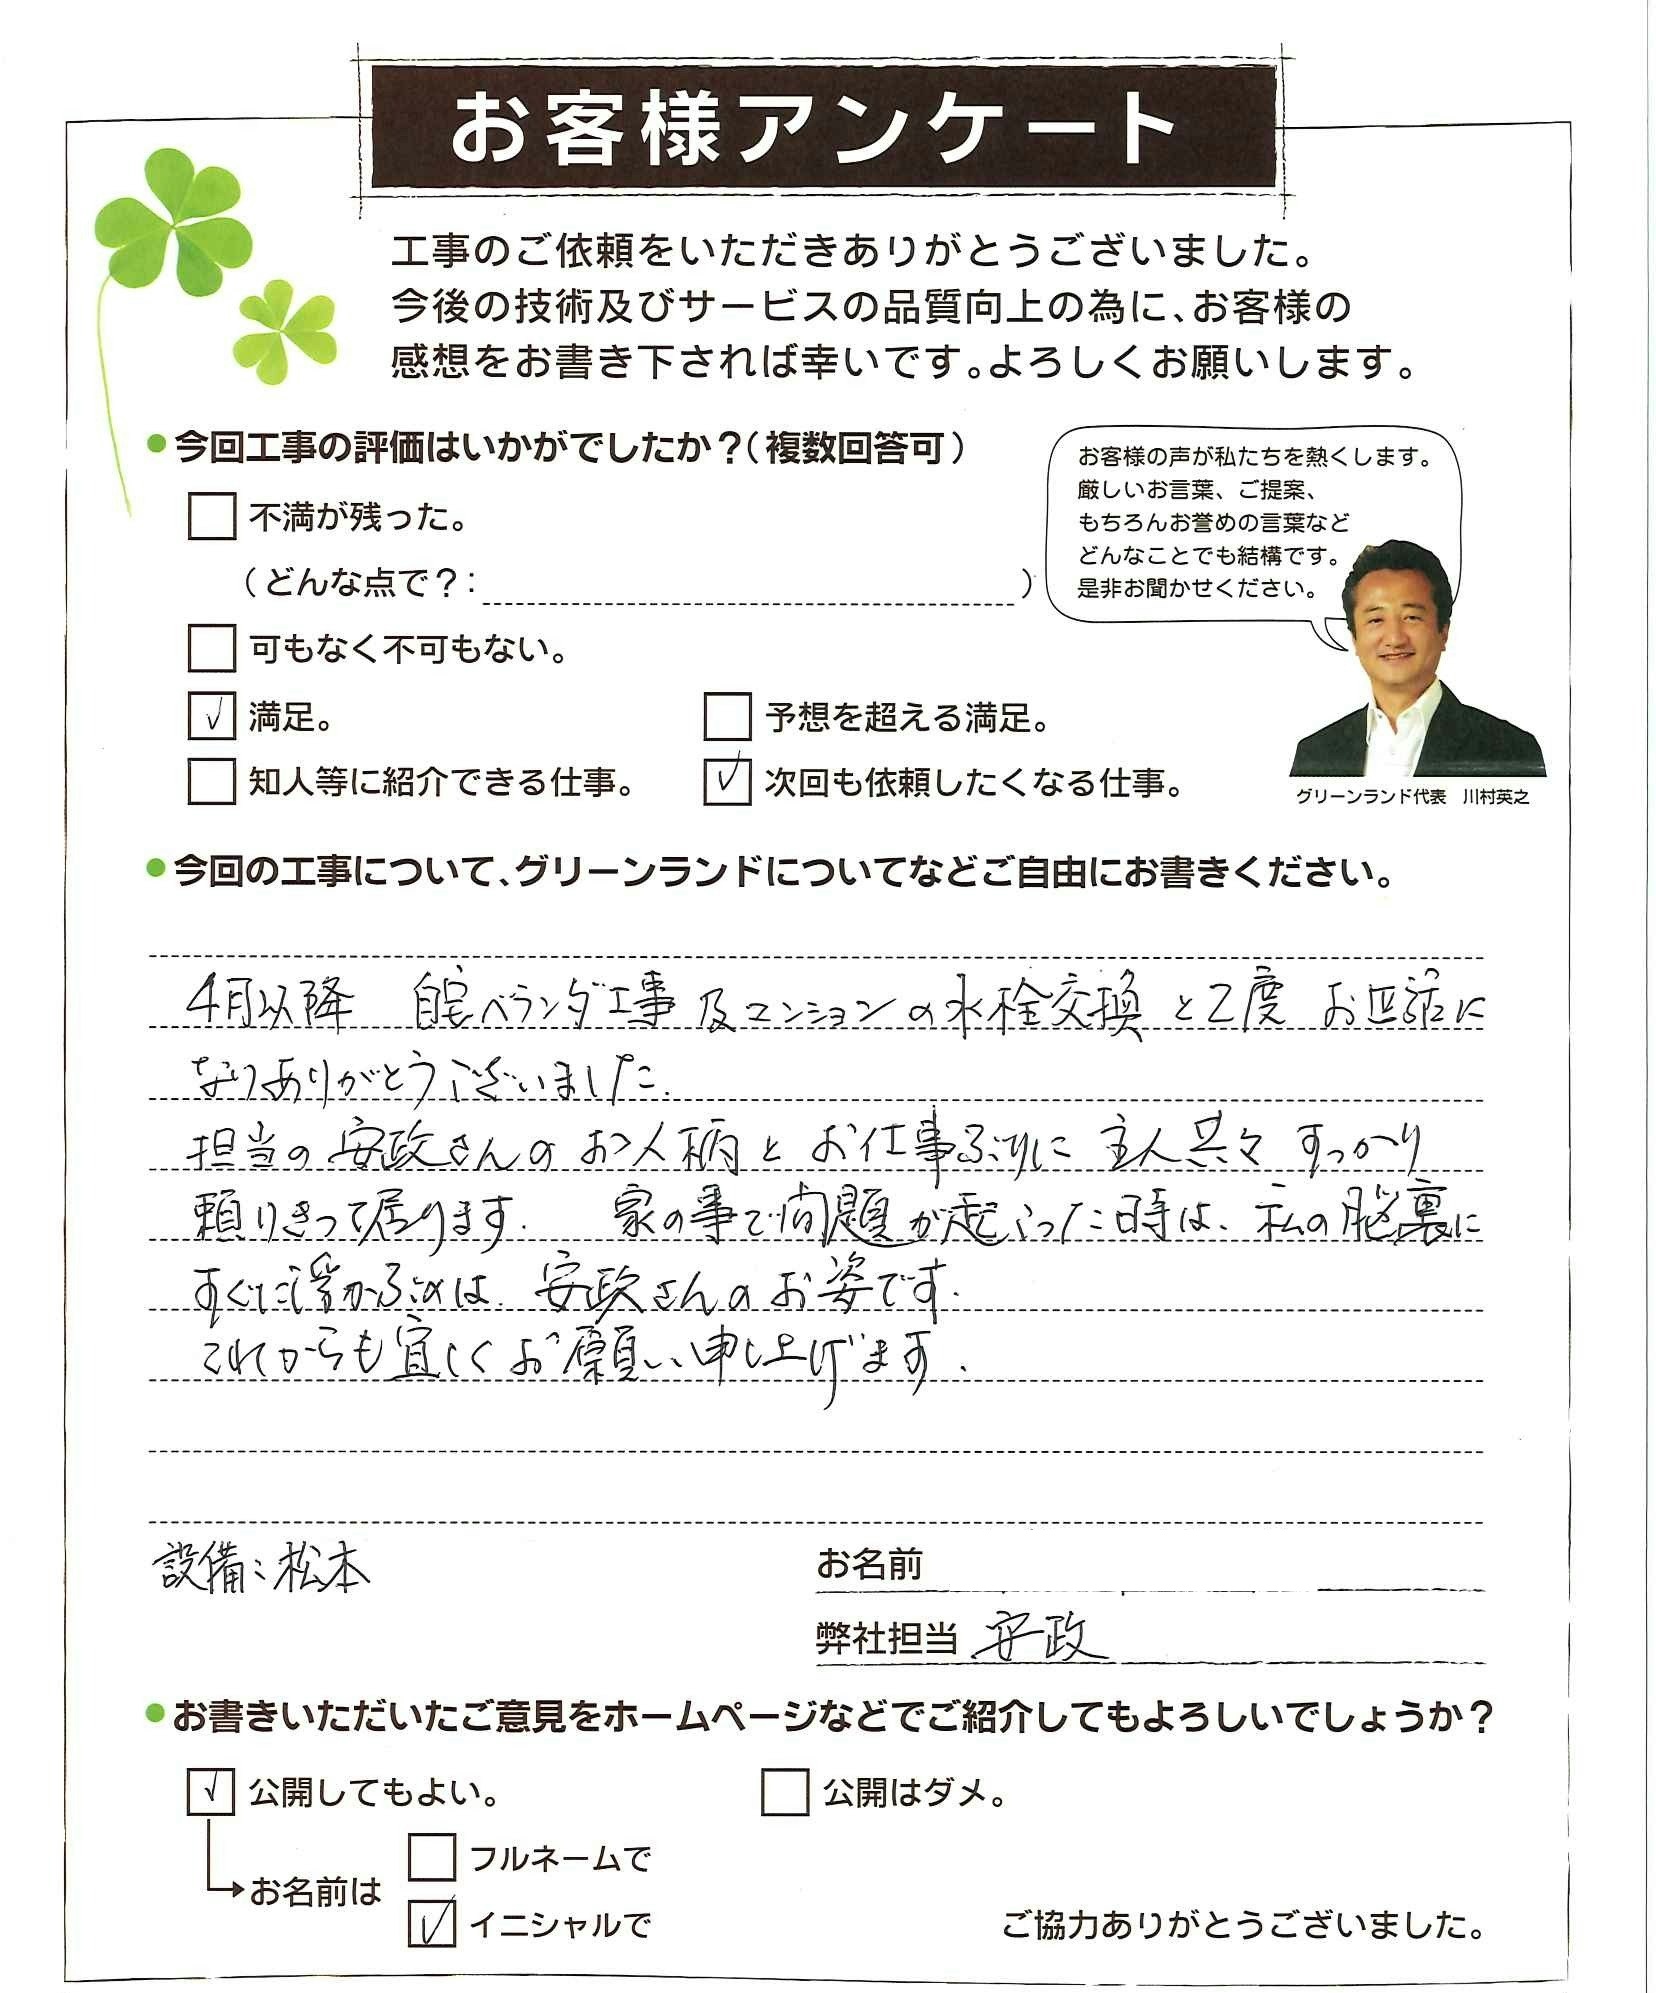 お客様アンケート
工事のご依頼をいただきありがとうございました。
今後の技術及びサービスの品質向上の為に、お客様の
感想をお書き下されば幸いです。よろしくお願いします。
●今回工事の評価はいかがでしたか？（複数回答可）
不満が残った。
（どんな点で？：　）
可もなく不可もない。
✓ 満足。
予想を超える満足。
知人等に紹介できる仕事。
✓ 次回も依頼したくなる仕事。
お客様の声が私たちを熱くします。
厳しいお言葉、ご提案、
もちろんお誉めの言葉など
どんなことでも結構です。
是非お聞かせください。
グリーンランド代表　川村英之
●今回の工事について、グリーンランドについてなどご自由にお書きください。
4月以降　自宅ベランダ工事及マンションの水栓交換と2度 お世話に
なりありがとうございました.
担当の安政さんのお人柄とお仕事ぶりに 主人共々 すっかり
頼りきって居ります.　家の事で問題が起こった時は、私の脳裏に
すぐに浮かぶのは、安政さんのお姿です.
これからも宜しくお願い申し上げます.
設備：松本
お名前
弊社担当 安政
●お書きいただいたご意見をホームページなどでご紹介してもよろしいでしょうか？
✓ 公開してもよい。
公開はダメ。
お名前は
フルネームで
✓ イニシャルで
ご協力ありがとうございました。